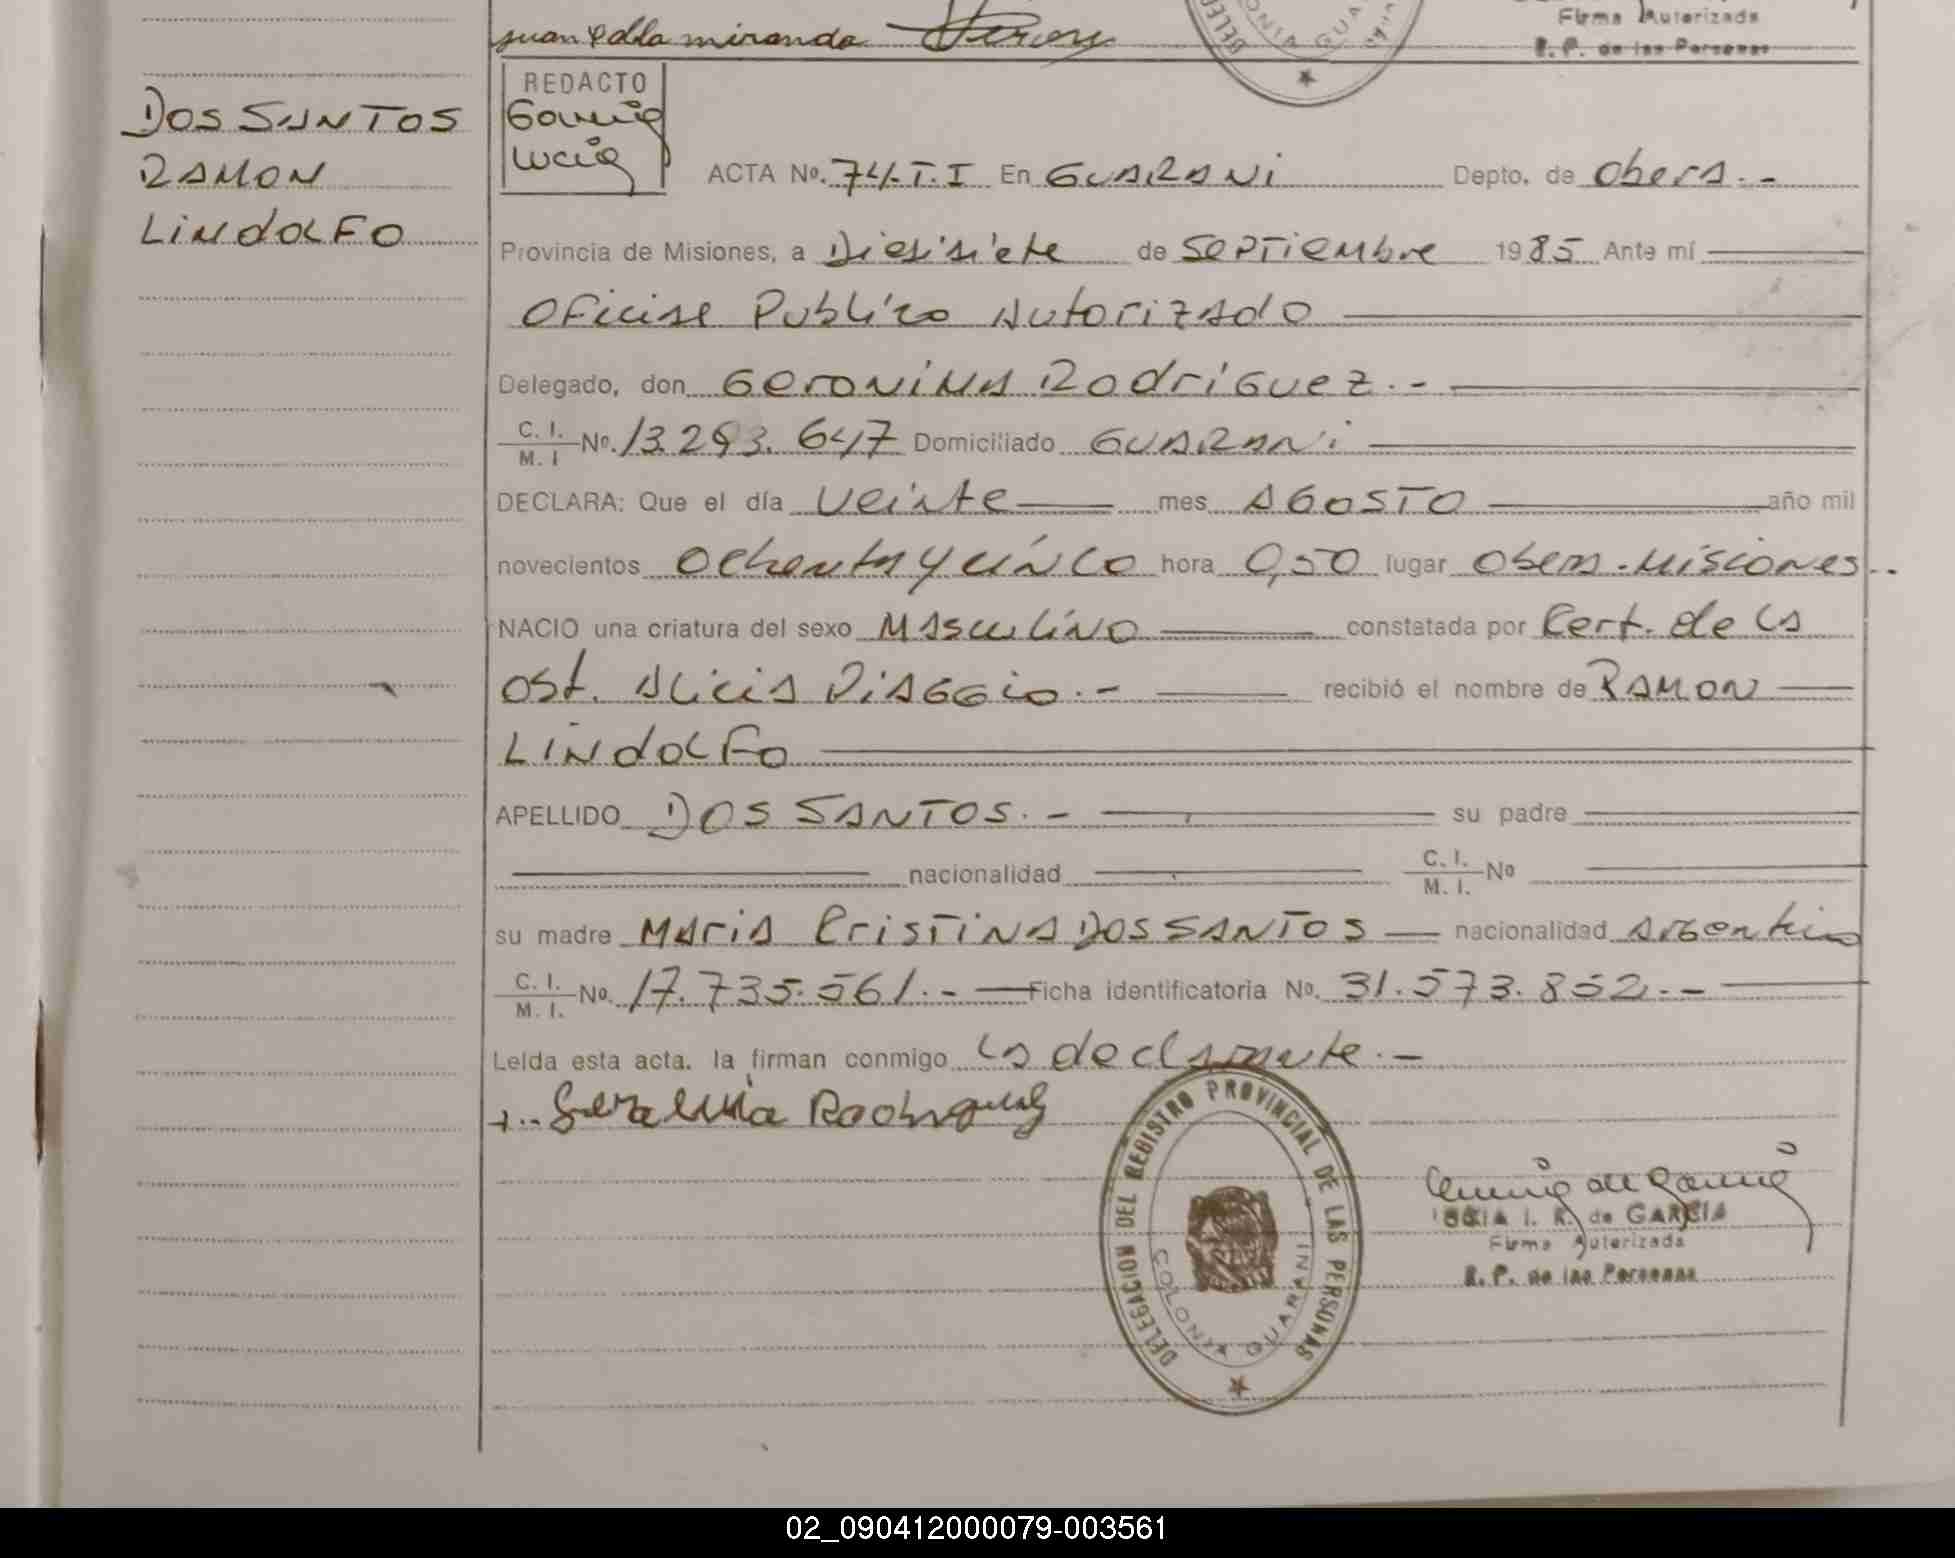 juan miranda
Firma Autorizada
R. P. de las Personas
DOS SANTOS
RAMON
LINDOLFO
REDACTO
Garcia
Lucia
ACTA No. 74.T.I En GUARANI Depto. de Obera.-
Provincia de Misiones, a Diesisiete de SEPTIEMbre 1985 Ante mí
OFicial Publico Autorizado
Delegado, don GERONIMA RodriGuez.-
C. I.
M. I No. 13.293.647 Domiciliado GUARANi
DECLARA: Que el día Veinte mes AGOSTO año mil
novecientos Ochenta y cinco hora 0,50 lugar Obera.Misiones..
NACIO una criatura del sexo MAsculiNo constatada por Cert. de la
Ost. Alicia DiAGGio.- recibió el nombre de RAMON
LINdOLFo
APELLIDO DOS SANTOS.- su padre
nacionalidad C. I.
M. I. No
su madre MARIA CRISTINA DOS SANTOS nacionalidad Argentina
C. I.
M. I. No. 17.735.561.- Ficha identificatoria No. 31.573.852.-
Leída esta acta. la firman conmigo la declarante.-
Rodriguez
DELEGACION DEL REGISTRO PROVINCIAL DE LAS PERSONAS
COLONIA GUARANI
LUCIA I. R. de GARCIA
Firma Autorizada
R. P. de las Personas
02_090412000079-003561